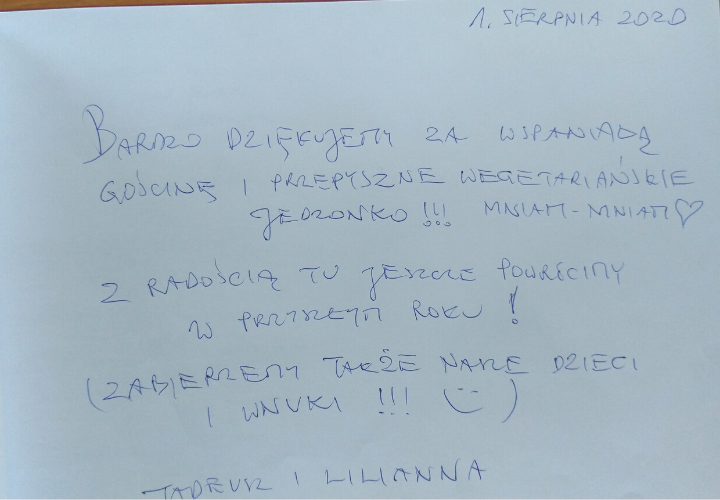 1. SIERPNIA 2020
BARDZO DZIĘKUJEMY ZA WSPANIAŁĄ
GOŚCINĘ I PRZEPYSZNE WEGETARIAŃSKIE
JEDZONKO!!! MNIAM-MNIAM♡
Z RADOŚCIĄ TU JESZCZE POWRÓCIMY
W PRZYSZŁYM ROKU!
(ZABIERZEMY TAKŻE NASZE DZIECI
I WNUKI !!! :-))
TADEUSZ I LILIANNA